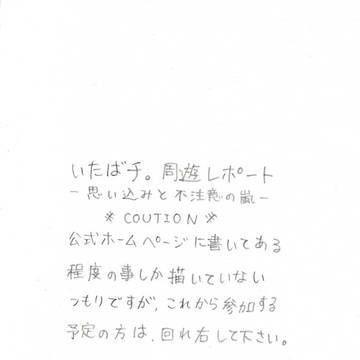 いたばチ。周遊レポート
－思い込みと不注意の嵐－
※COUTION※
公式ホームページに書いてある
程度の事しか描いていない
つもりですが、これから参加する
予定の方は、回れ右して下さい。